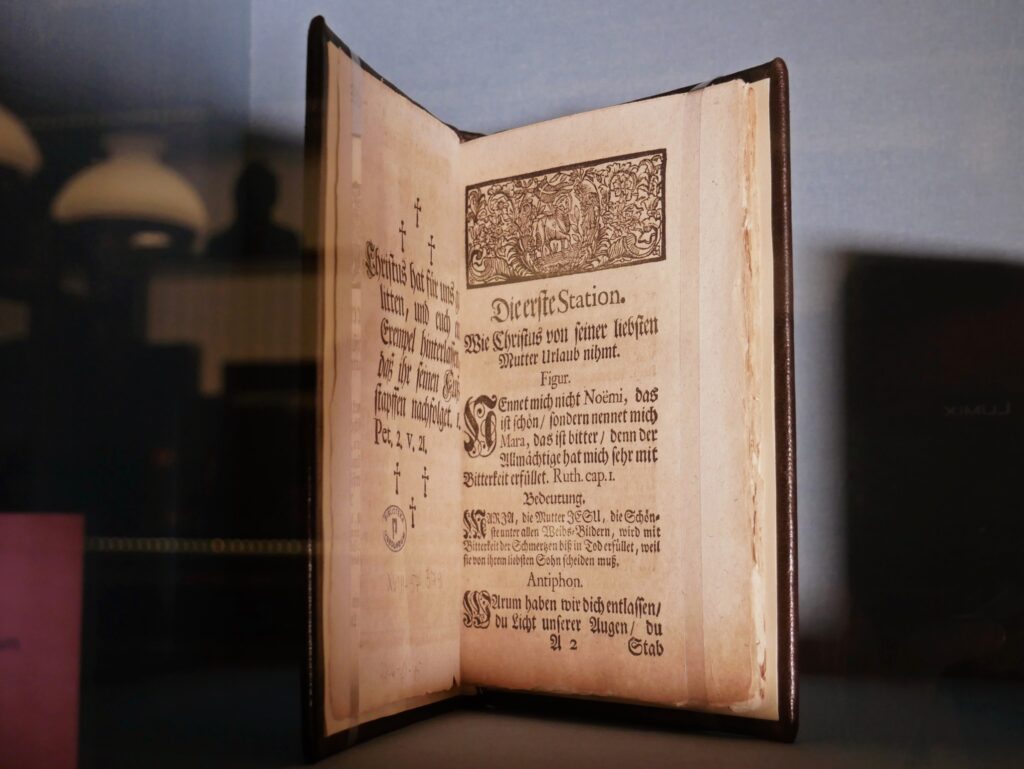 Christus hat für uns
litten, und euch
Exempel hinterlassen
daß ihr seinen
stapffen nachfolget.
Pet. 2. v. 21.
Die erste Station.
Wie Christus von seiner liebsten
Mutter Urlaub nihmt.
Figur.
NEnnet mich nicht Noëmi, das
ist schön / sondern nennet mich
Mara, das ist bitter / denn der
Allmächtige hat mich sehr mit
Bitterkeit erfüllet. Ruth. cap. 1.
Bedeutung.
MARJA, die Mutter JESU, die Schön-
ste unter allen Weibs-Bildern, wird mit
Bitterkeit der Schmertzen biß in Tod erfüllet, weil
sie von ihrem liebsten Sohn scheiden muß.
Antiphon.
WArum haben wir dich entlassen /
du Licht unserer Augen / du
A 2 Stab
LUMIX